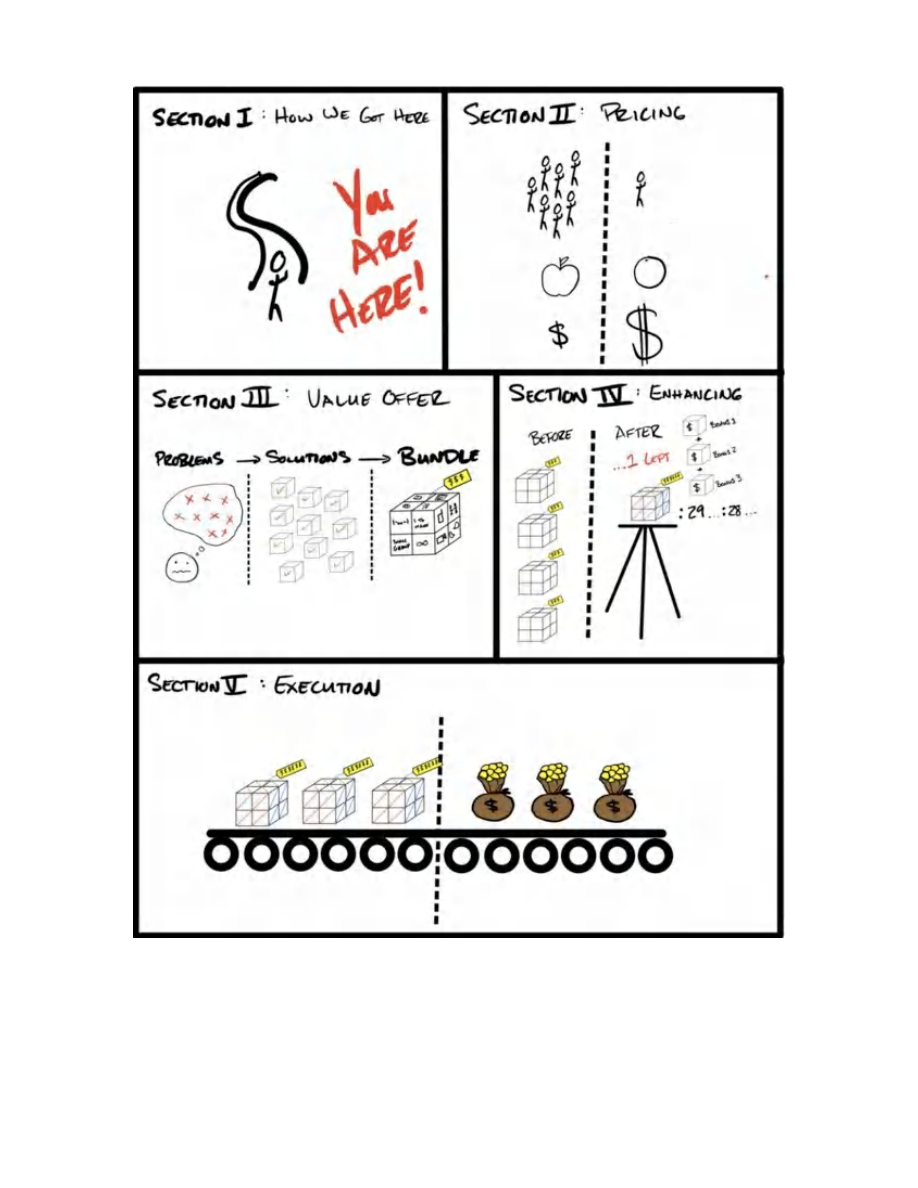 SECTION I : HOW WE GOT HERE
YOU
ARE
HERE!
SECTION II : PRICING
$ $
SECTION III : VALUE OFFER
PROBLEMS → SOLUTIONS → BUNDLE
$$$
SECTION IV : ENHANCING
BEFORE
$$$
$$$
$$$
$$$
AFTER
...1 LEFT
$ BONUS 1
+
$ BONUS 2
+
$ BONUS 3
:29...:28...
SECTION V : EXECUTION
$ $ $